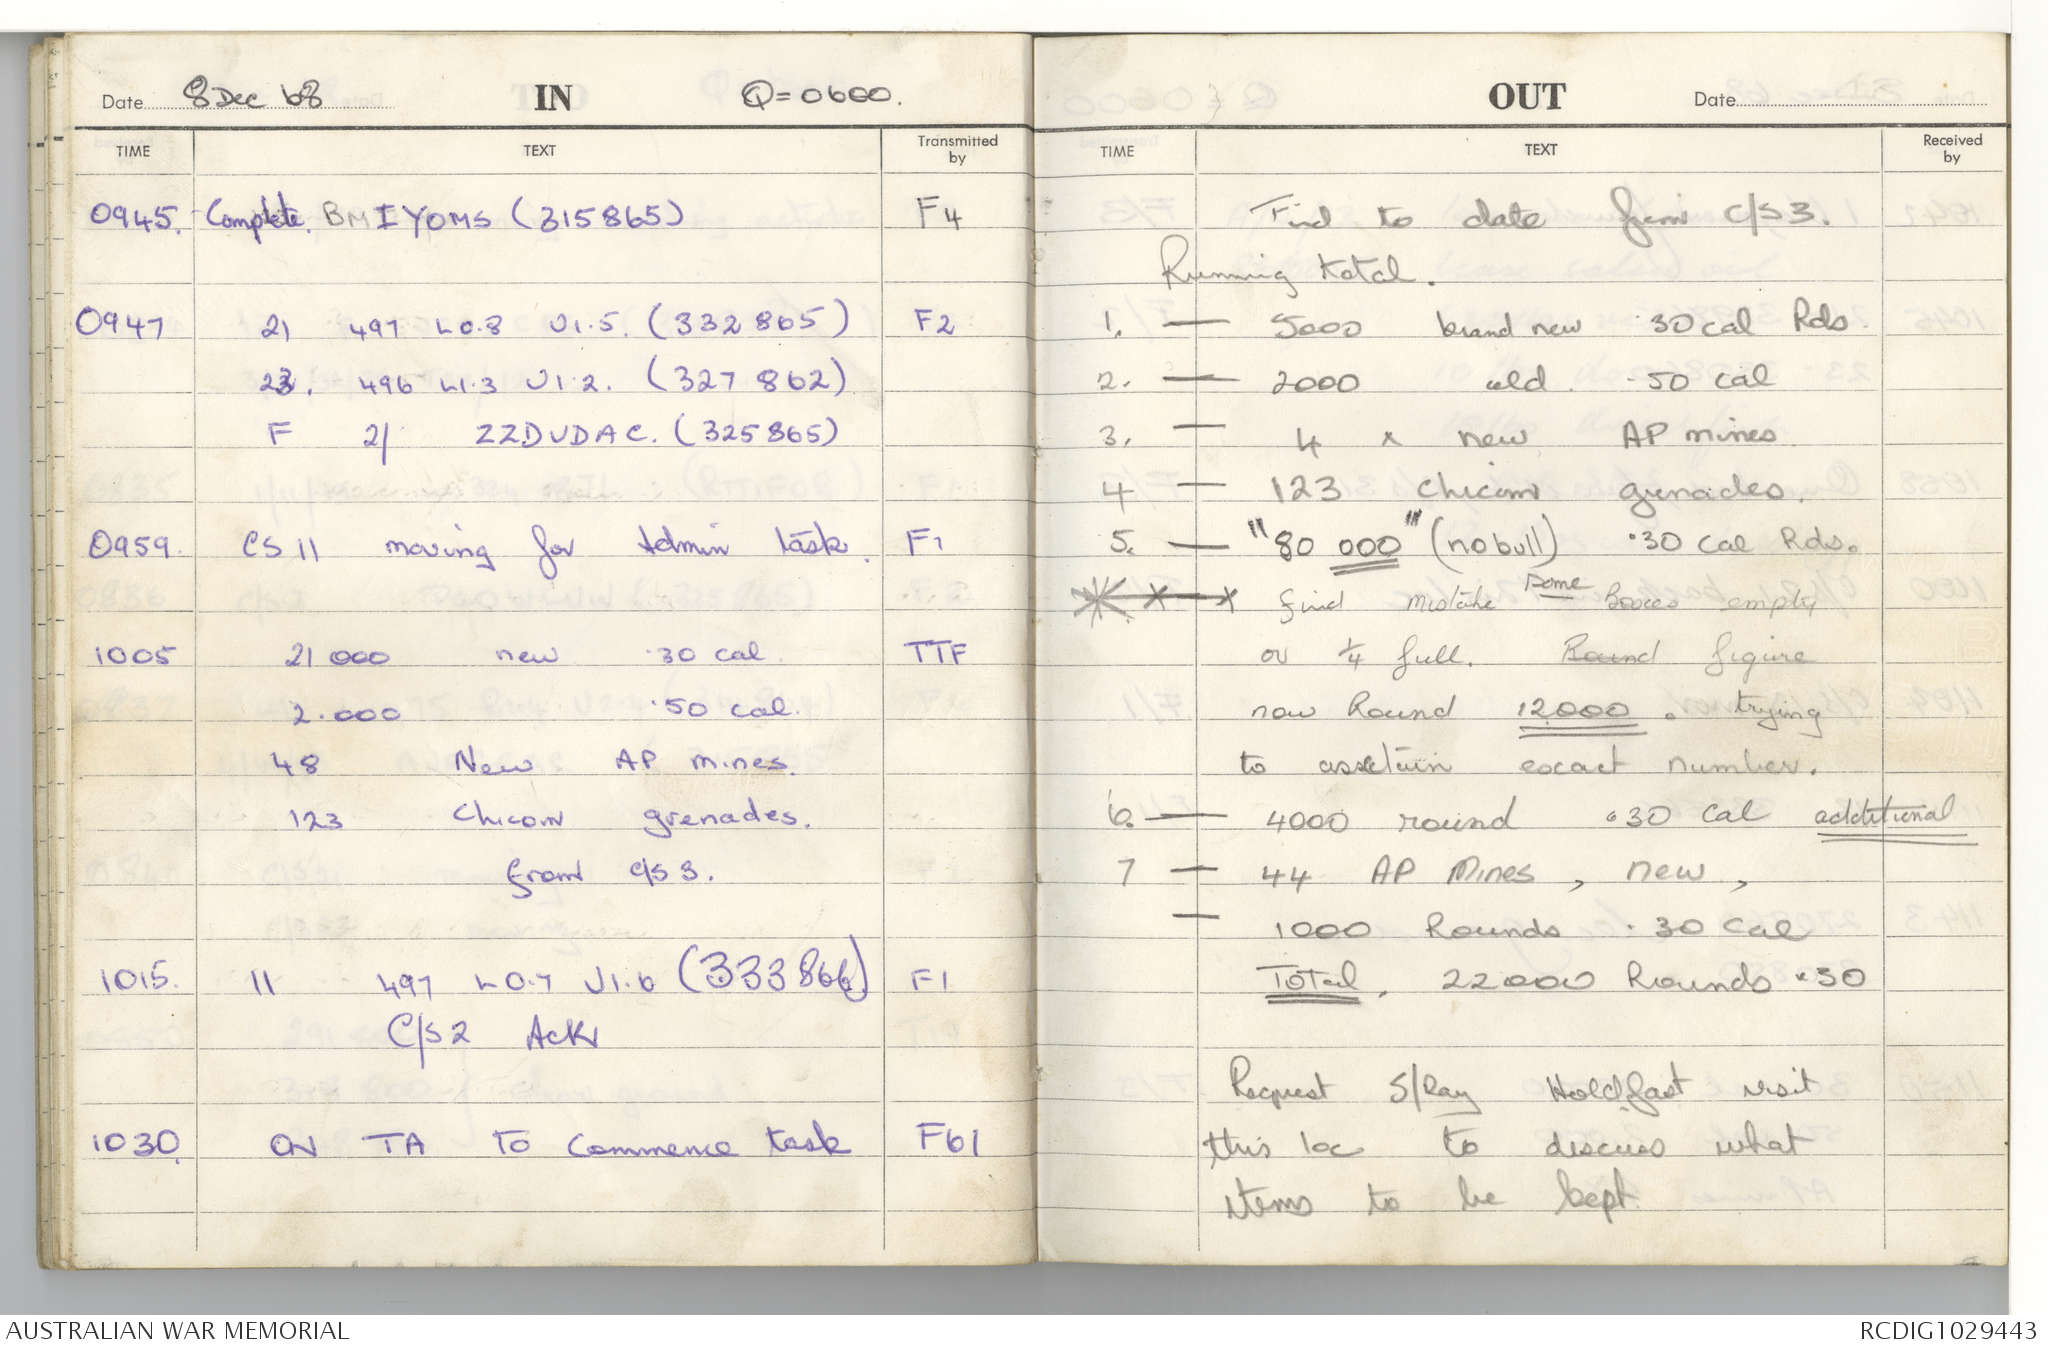 Date 8 Dec 68 IN Q=0600.
TIME TEXT Transmitted by
0945. Complete. BMIYOMS (315865) F4
0947 21 497 L0.8 U1.5. (332865) F2
23. 496 L1.3 U1.2. (327862)
F 21 ZZDUDAC. (325865)
0959. CS 11 moving for Admin task. F1
1005 21 000 new .30 cal. TTF
2.000 .50 cal.
48 New AP mines.
123 Chicom grenades.
from C/S 3.
1015. 11 497 L0.7 U1.6 (333866) F1
C/S 2 Ack
1030. ON TA TO Commence task F61
OUT Date
TIME TEXT Received by
Find to date from C/S 3.
Running total.
1. — 5000 brand new .30 cal Rds.
2. — 2000 old .50 cal
3. — 4 x new AP mines.
4 — 123 Chicom grenades.
5. — "80 000" (no bull) .30 cal Rds.
find mistake some Boxes empty
or 1/4 full. Round figure
now Round 12000. trying
to assetain excact number.
6. — 4000 round .30 cal additional
7 — 44 AP Mines, new,
— 1000 Rounds .30 cal
Total. 22000 Rounds .30
Request S/Ray Holdfast visit
this loc to discuss what
items to be kept.
AUSTRALIAN WAR MEMORIAL RCDIG1029443